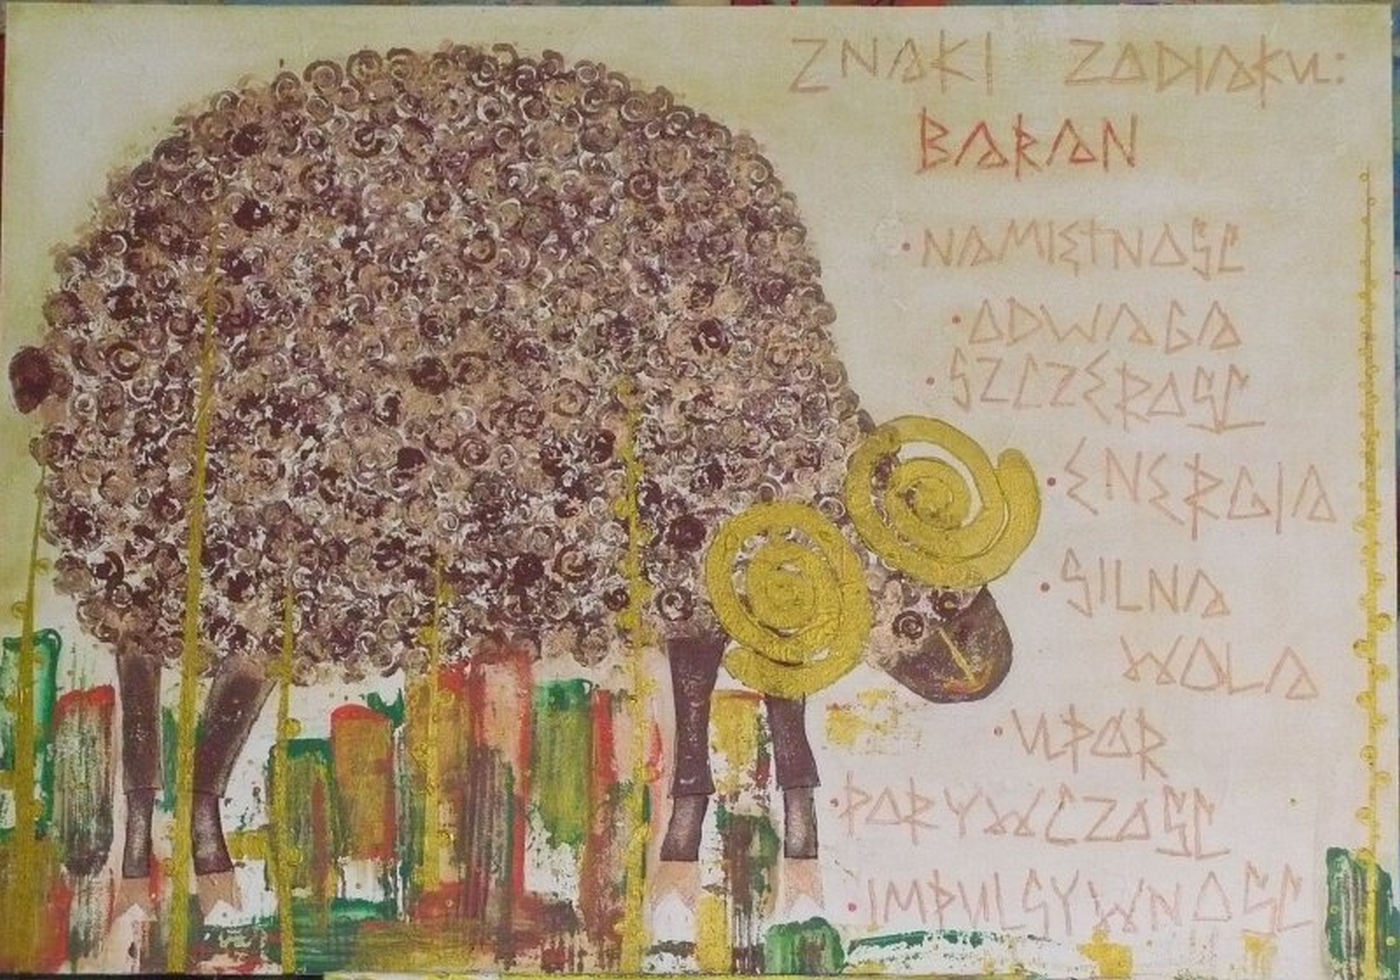 ZNAKI ZODIAKU:
BARAN
•NAMIĘTNOSC
•ODWAGA
•SZCZEROSC
•ENERGIA
•SILNA
WOLA
•UPOR
•PORYWCZOSC
•IMPULSYWNOSC